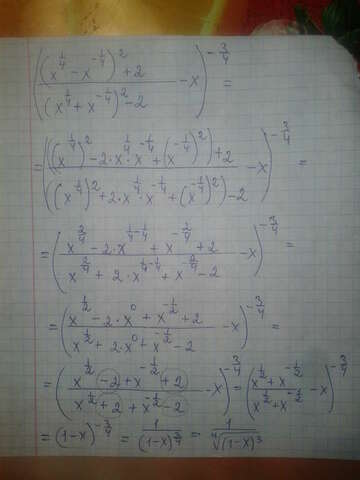 (((x^{1/4} - x^{-1/4})^2 + 2)/((x^{1/4} + x^{-1/4})^2 - 2) - x)^{-3/4} =
= (((x^{1/4})^2 - 2·x^{1/4}·x^{-1/4} + (x^{-1/4})^2) + 2)/(((x^{1/4})^2 + 2·x^{1/4}·x^{-1/4} + (x^{-1/4})^2) - 2) - x)^{-3/4} =
= ((x^{2/4} - 2·x^{1/4-1/4} + x^{-2/4} + 2)/(x^{2/4} + 2·x^{1/4-1/4} + x^{-2/4} - 2) - x)^{-3/4} =
= ((x^{1/2} - 2·x^0 + x^{-1/2} + 2)/(x^{1/2} + 2·x^0 + x^{-1/2} - 2) - x)^{-3/4} =
= ((x^{1/2} - 2 + x^{-1/2} + 2)/(x^{1/2} + 2 + x^{-1/2} - 2) - x)^{-3/4} = ((x^{1/2} + x^{-1/2})/(x^{1/2} + x^{-1/2}) - x)^{-3/4}
= (1-x)^{-3/4} = 1/(1-x)^{3/4} = 1/\sqrt[4]{(1-x)^3}